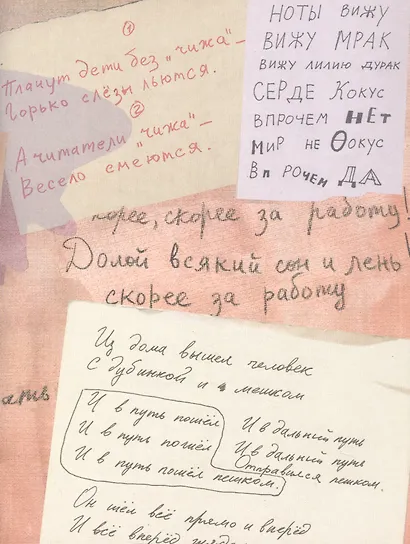 ①
Плачут дети без "чижа"—
Горько слёзы льются.
②
А читатели "чижа"—
Весело смеются.
НОТЫ ВИЖУ
ВИЖУ МРАК
ВИЖУ ЛИЛИЮ ДУРАК
СЕРДЕ КОКУС
ВПРОЧЕМ НЕТ
МИР НЕ ФОКУС
ВПРОЧЕМ ДА
скорее за работу!
Долой всякий сон и лень
скорее за работу
ать
Из дома вышел человек
С дубинкой и мешком
И в путь пошёл
И в путь пошёл
И в путь пошёл пешком.
И в дальный путь
И в дальный путь
Отправился пешком.
Он шёл всё прямо и вперёд
И всё вперёд